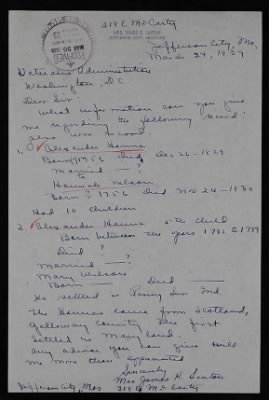 318 E McCarty
MRS. JAMES H. LINTON
JEFFERSON CITY, MISSOURI
Jefferson City, Mo,
March 24, 1939
RECEIVED
MAR 30 1939
Veterans Administration
Washington, D.C.
Dear Sir:
What information can you give
me regarding the following
war record
1. Alexander Hanna
Born 1756 Died Dec 26-1829
Married - ?
Hannah Nelson
Born - 1756 died Nov 24-1830
Had 10 children
2. Alexander Hanna 5th child
Born between the years 1782 &1789
Died ?
Married - ?
Mary Wilson
Born — Died —
He settled in Ind
The Hannas came from Scotland,
Galloway County the first
settled in Maryland.
Any advice you can give will
be more than appreciated
Sincerely
Mrs James H. Linton
Jefferson City, Mo 318 E McCarty